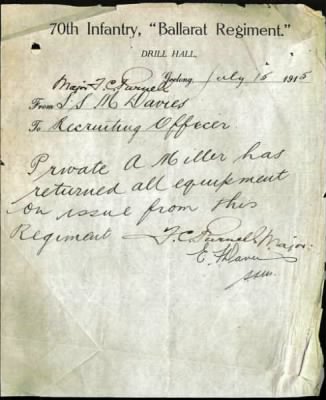 70th Infantry, "Ballarat Regiment."
DRILL HALL,
Geelong, July 15 1915
Major F. C. Purnell
From S S M Davies
To Recruiting Officer.
Private A Miller has
returned all equipment
on issue from this
Regiment F. C. Purnell, Major.
E. Davies
SSM